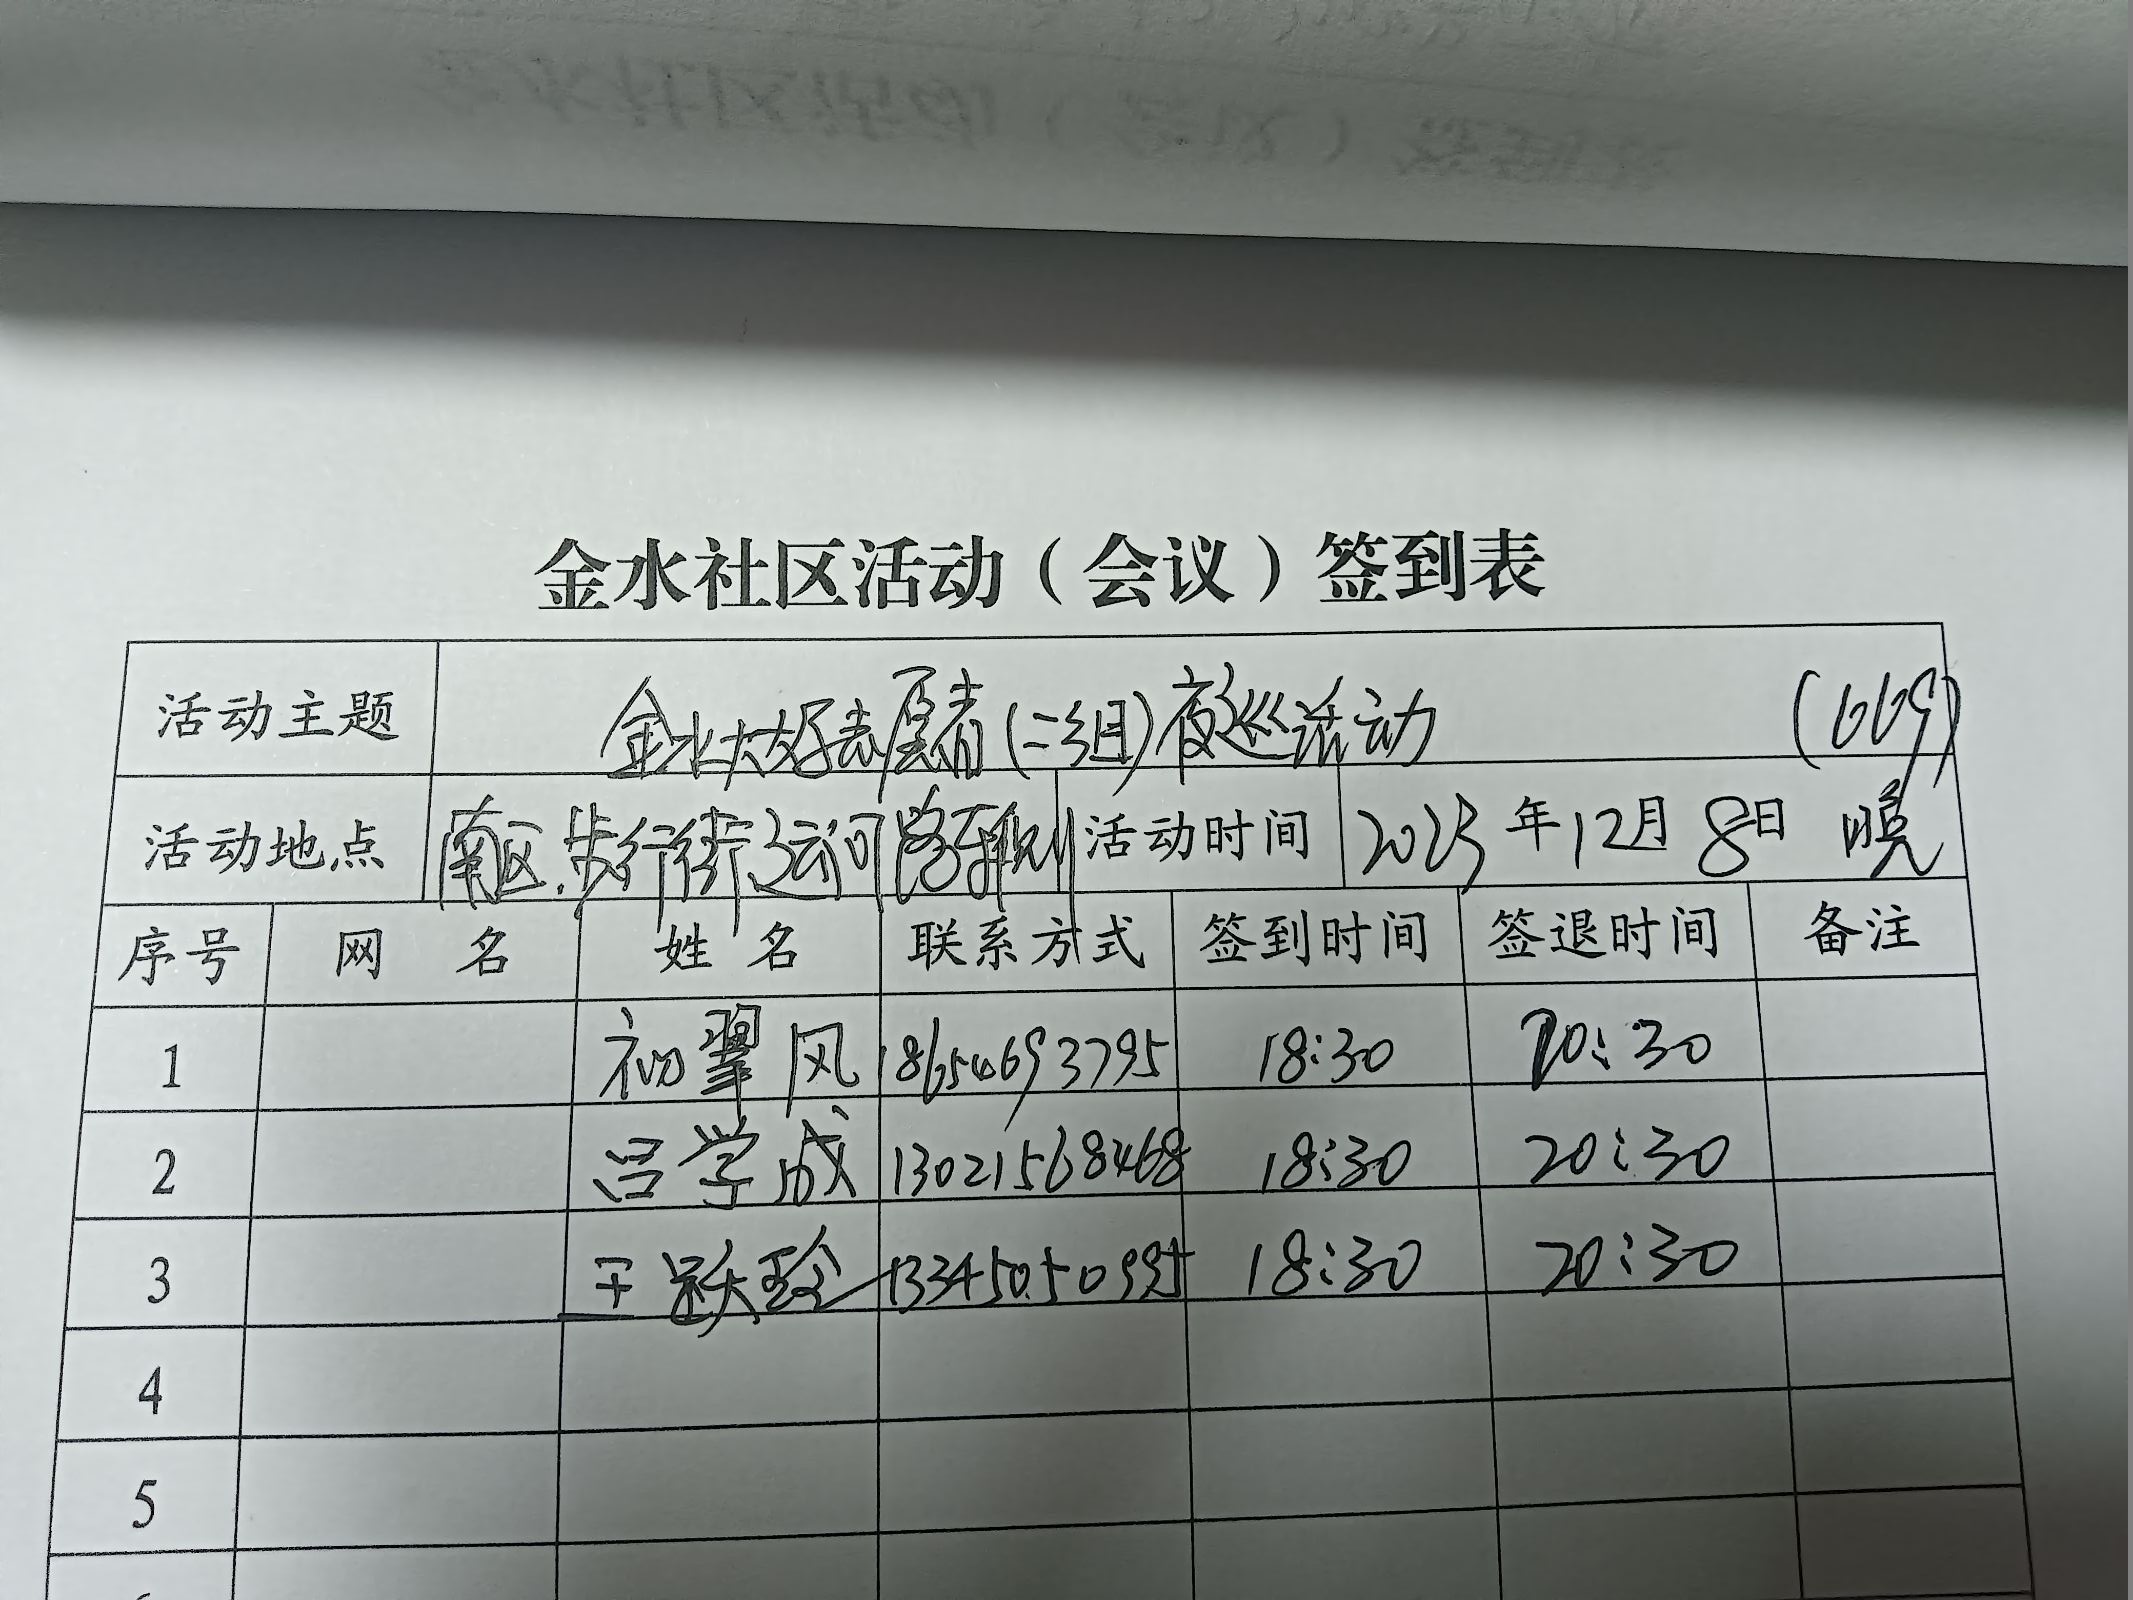 金水社区活动（会议）签到表
活动主题 金水大好志愿者(二组)夜巡活动 (669)
活动地点 南区.步行街.运河路 活动时间 2023年12月8日 晚
序号 网 名 姓 名 联系方式 签到时间 签退时间 备注
1 初翠风 18654693795 18:30 20:30
2 吕学成 13021568468 18:30 20:30
3 王跃玲 13345050995 18:30 20:30
4
5